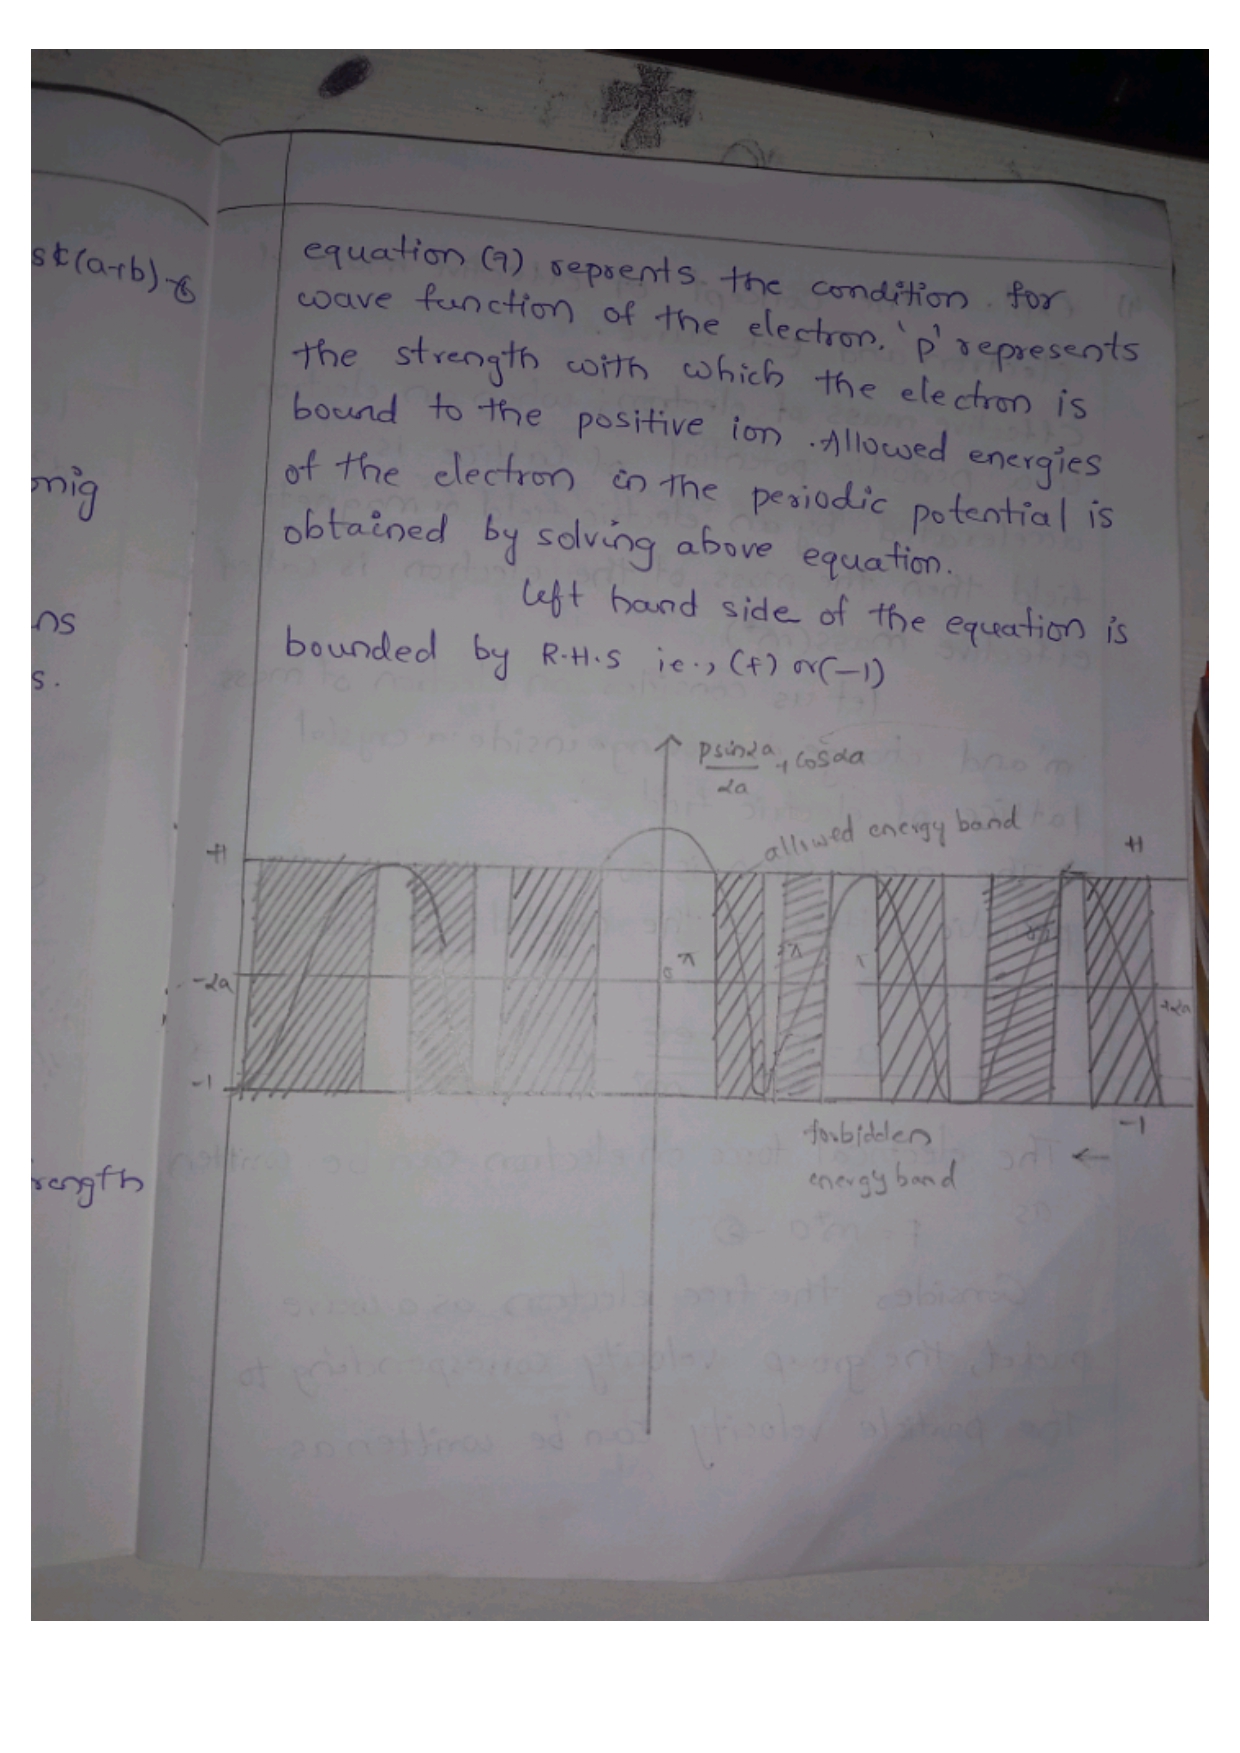 st(a+b)-6
onig
ns
s.
rength
equation (9) reprents the condition for
wave function of the electron. 'p' represents
the strength with which the electron is
bound to the positive ion. Allowed energies
of the electron in the periodic potential is
obtained by solving above equation.
left hand side of the equation is
bounded by R.H.S ie., (+) or (-1)
psin2a + cosαa
2a
alliwed energy band
+1
+1
π
-2a
+2a
-1
-1
forbidden
energy band